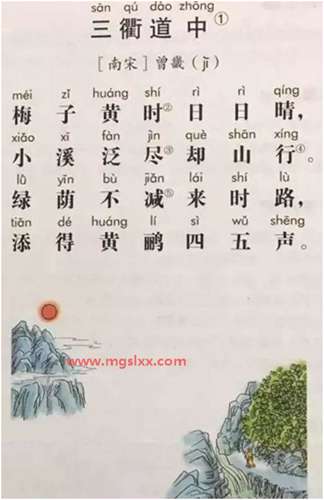 sān qú dào zhōng
三衢道中①
[南宋]曾畿(jī)
méi zǐ huáng shí rì rì qíng
梅子黄时②日日晴，
xiǎo xī fàn jìn què shān xíng
小溪泛尽③却山行④。
lǜ yīn bù jiǎn lái shí lù
绿荫不减⑤来时路，
tiān dé huáng lí sì wǔ shēng
添得黄鹂四五声。
www.mgslxx.com